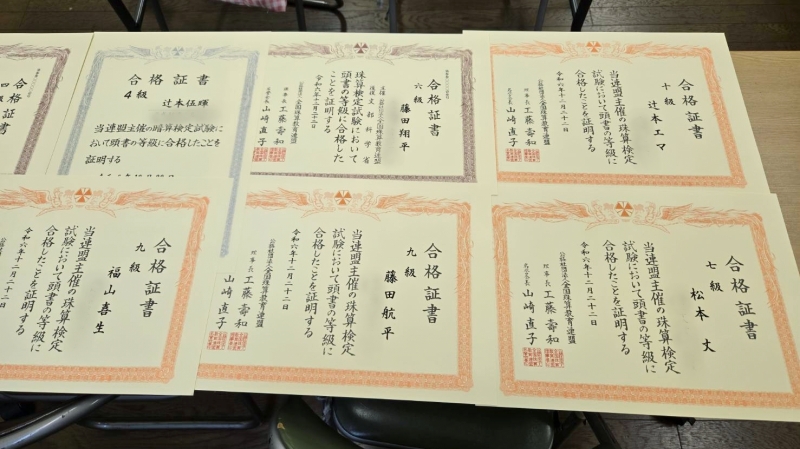 合格証書
合格証書
4級
辻本伍暉
当連盟主催の暗算検定試験に
おいて頭書の等級に合格したことを
証明する
合格証書
六級
藤田翔平
主催
後援 文部科学省
珠算検定試験において
頭書の等級に合格した
ことを証明する
令和六年十二月二十二日
公益社団法人全国珠算教育連盟
理事長 工藤壽和
山崎直子
合格証書
十級
辻本エマ
当連盟主催の珠算検定
試験において頭書の等級に
合格したことを証明する
令和六年十二月二十二日
公益社団法人全国珠算教育連盟
理事長 工藤壽和
山崎直子
合格証書
九級
福山喜生
当連盟主催の珠算検定
試験において頭書の等級に
合格したことを証明する
令和六年十二月二十二日
合格証書
九級
藤田航平
当連盟主催の珠算検定
試験において頭書の等級に
合格したことを証明する
令和六年十二月二十二日
公益社団法人全国珠算教育連盟
理事長 工藤壽和
山崎直子
合格証書
七級
松本丈
当連盟主催の珠算検定
試験において頭書の等級に
合格したことを証明する
令和六年十二月二十二日
公益社団法人全国珠算教育連盟
理事長 工藤壽和
山崎直子